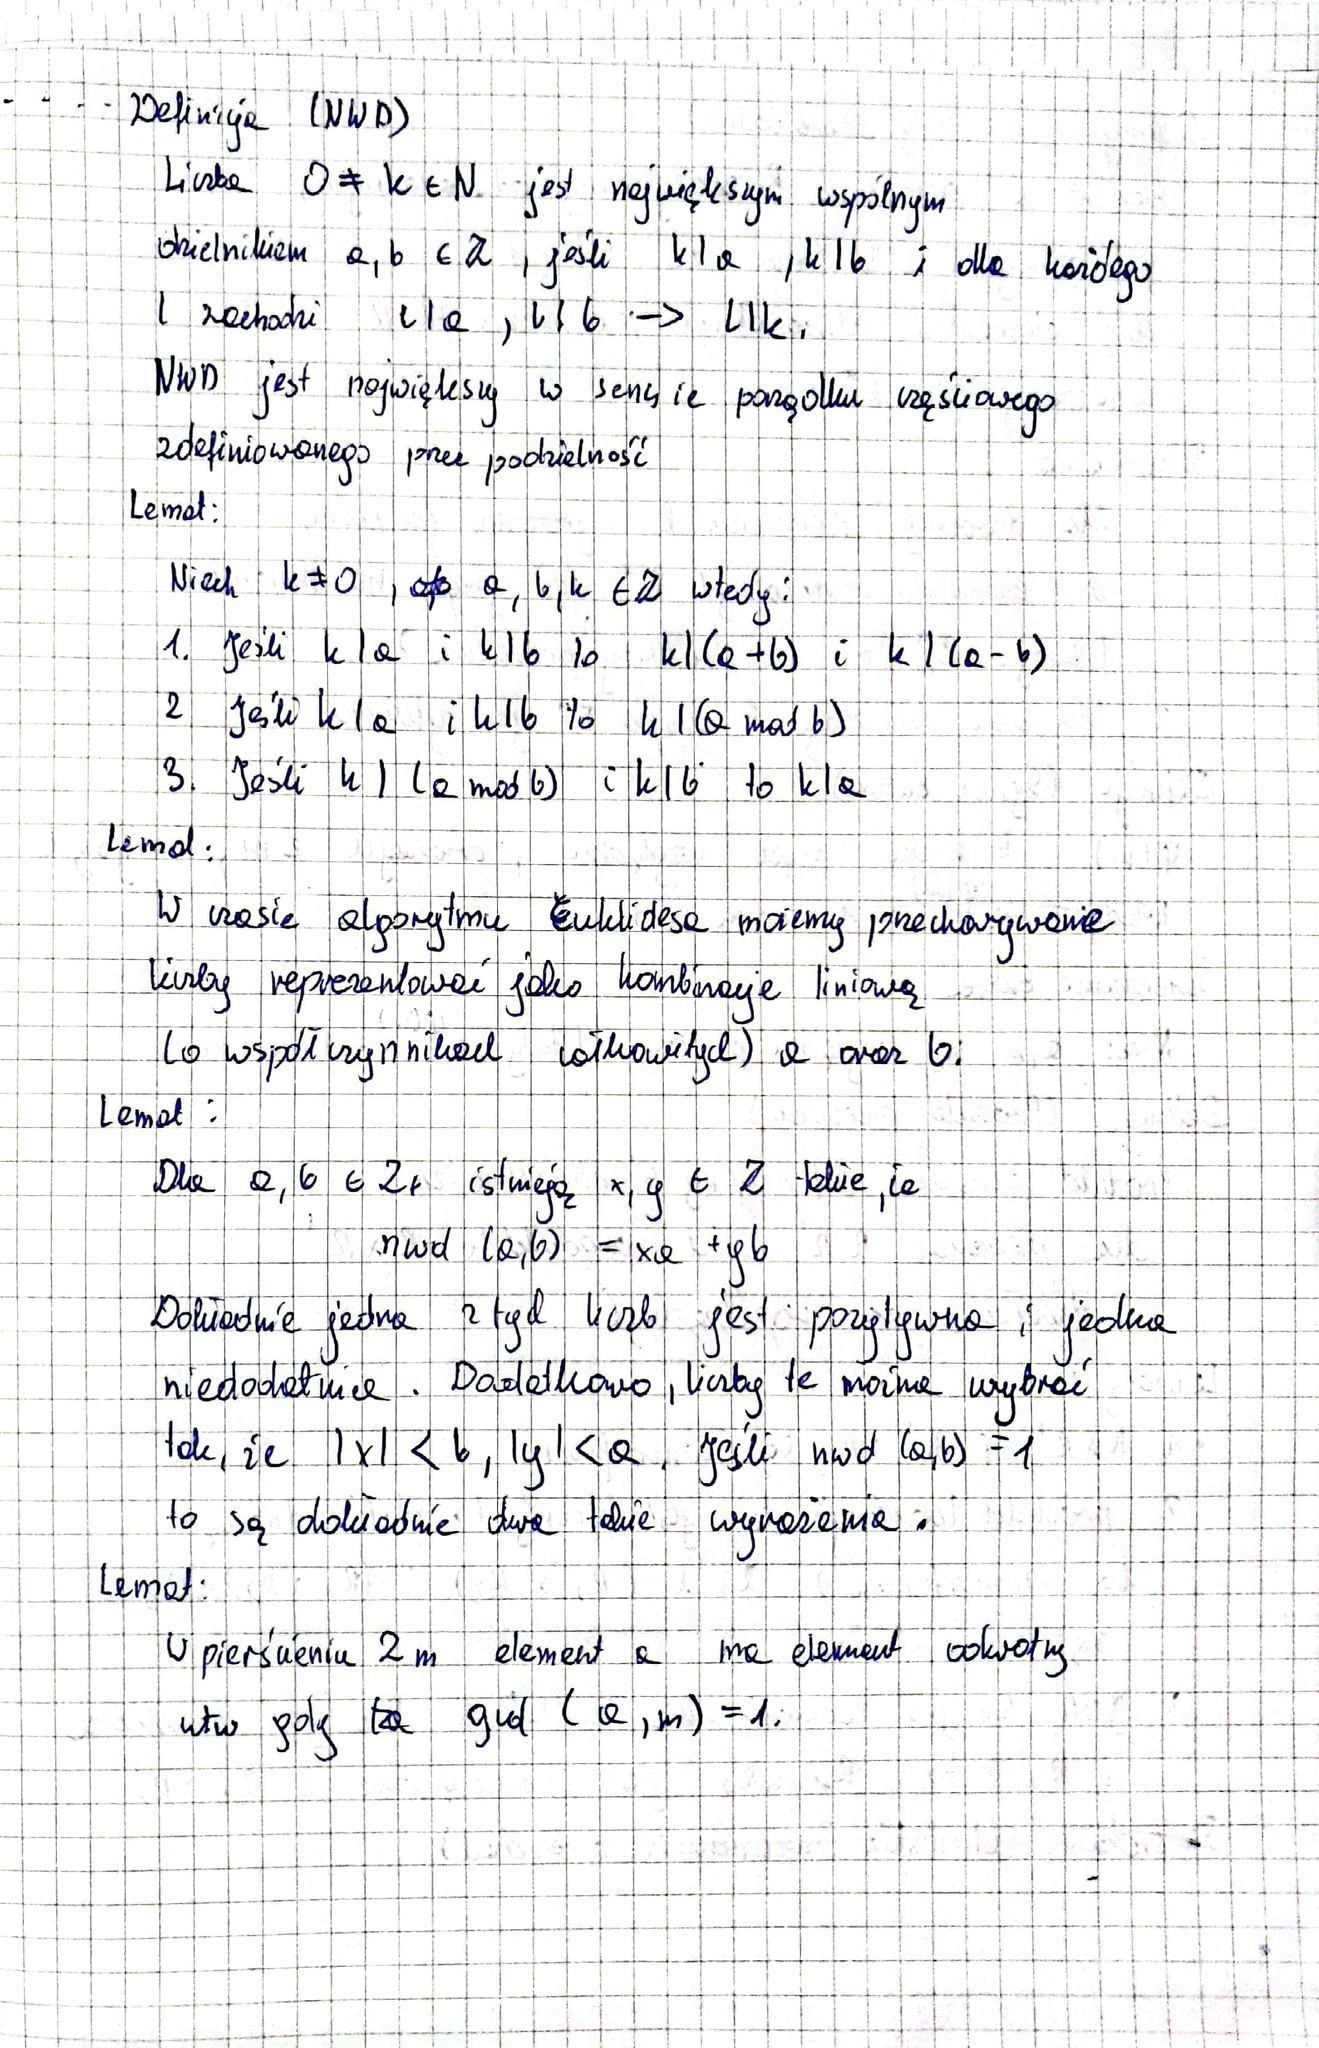 Definicja (NWD)
Liczba 0 ≠ k ∈ N jest największym wspólnym
dzielnikiem a, b ∈ Z, jeśli k|a, k|b i dla każdego
l zachodzi l|a, l|b -> l|k.
NWD jest największy w sensie porządku częściowego
zdefiniowanego przez podzielność
Lemat:
Niech k≠0, a, b, k ∈ Z wtedy:
1. Jeśli k|a i k|b to k|(a+b) i k|(a-b)
2 Jeśli k|a i k|b to k|(a mod b)
3. Jeśli k|(a mod b) i k|b to k|a
Lemat:
W czasie algorytmu Euklidesa możemy przechowywanie
liczby reprezentować jako kombinacje liniową
(o współczynnikach całkowitych) a oraz b.
Lemat:
Dla a, b ∈ Z+ istnieją x, y ∈ Z takie, że
nwd (a,b) = xa + yb
Dokładnie jedna z tych liczb jest pozytywna i jedna
niedodatnia. Dodatkowo, liczby te można wybrać
tak, że |x| < b, |y| < a. Jeśli nwd (a,b) = 1
to są dokładnie dwa takie wyrażenia.
Lemat:
W pierścieniu Zm element a ma element odwrotny
wtw gdy gcd (a, m) = 1.